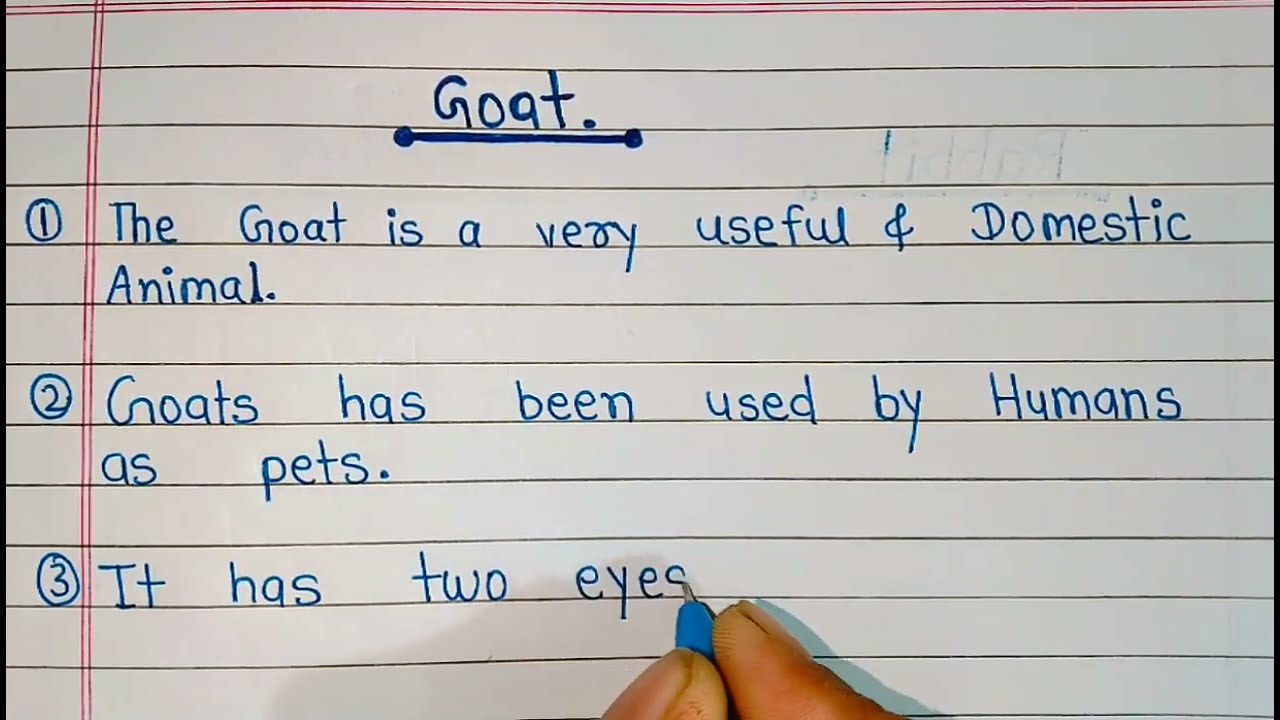 Goat.
① The Goat is a very useful & Domestic
Animal.
② Goats has been used by Humans
as pets.
③ It has two eyes